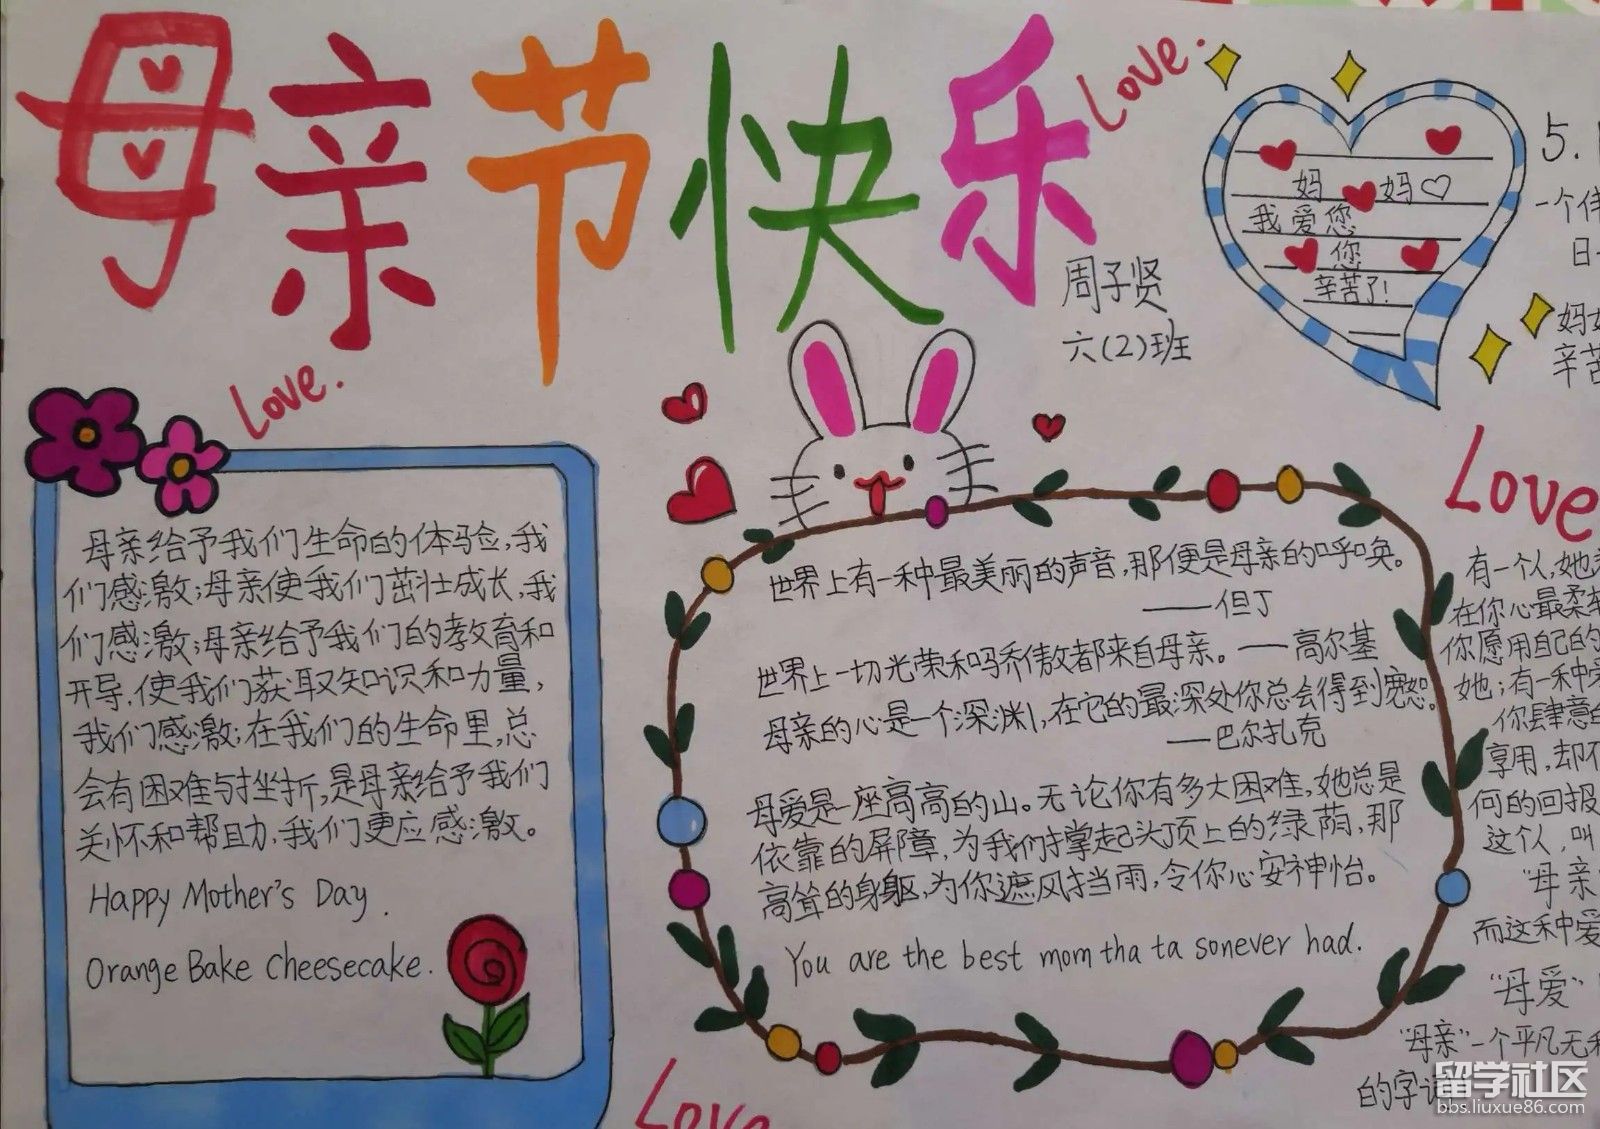 母亲节快乐
Love.
Love.
周子贤
六(2)班
妈妈♡
我爱您
您
辛苦了!
5.
一个
日
妈
辛苦
母亲给予我们生命的体验,我
们感激;母亲使我们茁壮成长,我
们感激;母亲给予我们的教育和
开导,使我们获取知识和力量,
我们感激;在我们的生命里,总
会有困难与挫折,是母亲给予我们
关怀和帮助,我们更应感激。
Happy Mother's Day.
Orange Bake Cheesecake.
世界上有一种最美丽的声音,那便是母亲的呼唤。
——但丁
世界上一切光荣和骄傲都来自母亲。——高尔基
母亲的心是一个深渊,在它的最深处你总会得到宽恕。
——巴尔扎克
母爱是一座高高的山。无论你有多大困难,她总是
依靠的屏障,为我们撑起头顶上的绿荫,那
高耸的身躯,为你遮风挡雨,令你心安神怡。
You are the best mom tha ta sonever had.
Love
有一个人,她
在你心最柔软
你愿用自己的
她;有一种
你肆意的
享用,却不
何的回报
这个人,叫
“母亲”
而这种爱
“母爱”
“母亲”一个平凡无
的字
Love
留学社区
bbs.liuxue86.com